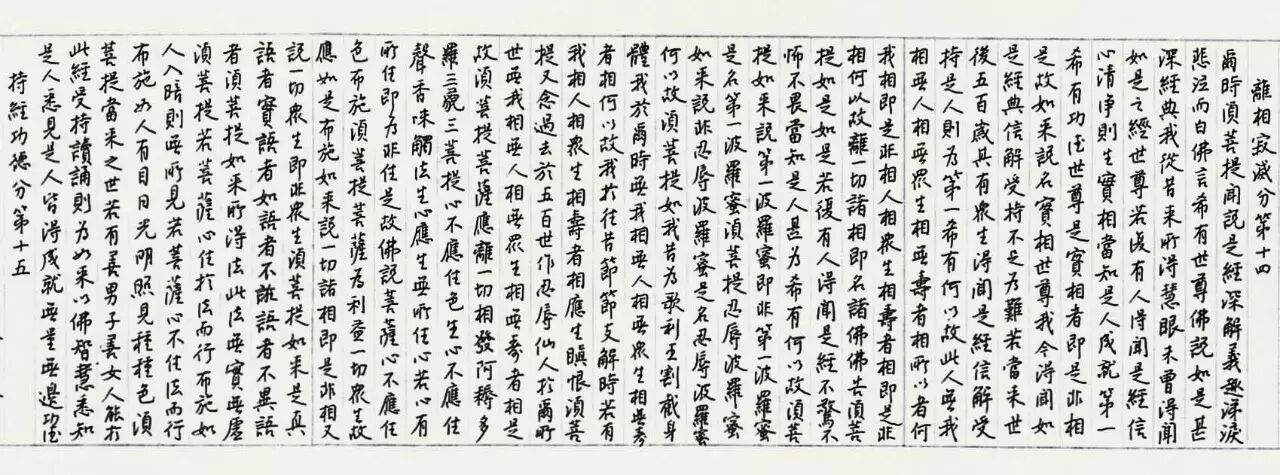 離相寂滅分第十四
爾時須菩提聞說是經深解義趣涕淚
悲泣而白佛言希有世尊佛說如是甚
深經典我從昔來所得慧眼未曾得聞
如是之經世尊若復有人得聞是經信
心清淨則生實相當知是人成就第一
希有功德世尊是實相者即是非相
是故如來說名實相世尊我今得聞如
是經典信解受持不足為難若當來世
後五百歲其有眾生得聞是經信解受
持是人則為第一希有何以故此人無我
相無人相無眾生相無壽者相所以者何
我相即是非相人相眾生相壽者相即是非
相何以故離一切諸相即名諸佛佛告須菩
提如是如是若復有人得聞是經不驚不
怖不畏當知是人甚為希有何以故須菩
提如來說第一波羅蜜即非第一波羅蜜
是名第一波羅蜜須菩提忍辱波羅蜜
如來說非忍辱波羅蜜是名忍辱波羅蜜
何以故須菩提如我昔為歌利王割截身
體我於爾時無我相無人相無眾生相無壽
者相何以故我於往昔節節支解時若有
我相人相眾生相壽者相應生瞋恨須菩
提又念過去於五百世作忍辱仙人於爾所
世無我相無人相無眾生相無壽者相是
故須菩提菩薩應離一切相發阿耨多
羅三藐三菩提心不應住色生心不應住
聲香味觸法生心應生無所住心若心有
所住即為非住是故佛說菩薩心不應住
色布施須菩提菩薩為利益一切眾生故
應如是布施如來說一切諸相即是非相又
說一切眾生即非眾生須菩提如來是真
語者實語者如語者不誑語者不異語
者須菩提如來所得法此法無實無虛
須菩提若菩薩心住於法而行布施如
人入暗則無所見若菩薩心不住法而行
布施如人有目日光明照見種種色須
菩提當來之世若有善男子善女人能於
此經受持讀誦則為如來以佛智慧悉知
是人悉見是人皆得成就無量無邊功德
持經功德分第十五